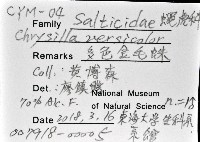 CYM-04
Family Salticidae 蠅虎科
Chrysilla versicolor
Remarks 多色金毛蛛
Coll.: 黃
Det.: National Museum
70% Alc. F. of Natural Science n.=13
Date 2018, 3, 16 東海大學生科系
007918-00005